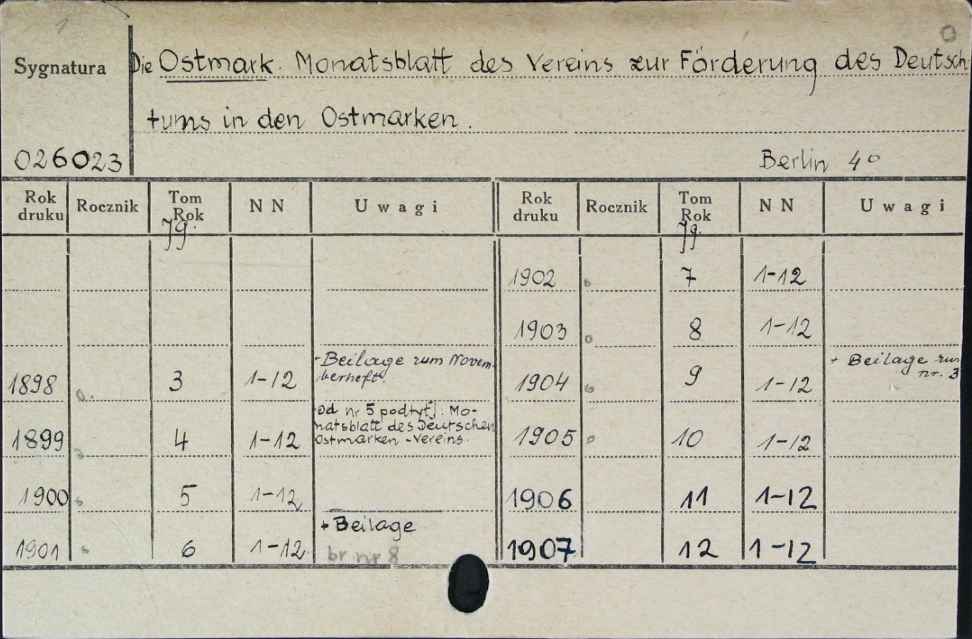 Sygnatura
Die Ostmark. Monatsblatt des Vereins zur Förderung des Deutsch
tums in den Ostmarken.
026023
Berlin 4°
Rok druku Rocznik Tom Rok NN Uwagi Rok druku Rocznik Tom Rok NN Uwagi
Jg. Jg.
1902 7 1-12
1903 8 1-12
1898 3 1-12 + Beilage zum Novem-
berheft.
1904 9 1-12 + Beilage zur
nr. 3
1899 4 1-12 Od nr 5 podtyt.: Mo-
natsblatt des Deutschen
Ostmarken-Vereins.
1905 10 1-12
1900 5 1-12
1906 11 1-12
1901 6 1-12 + Beilage
br nr 8
1907 12 1-12